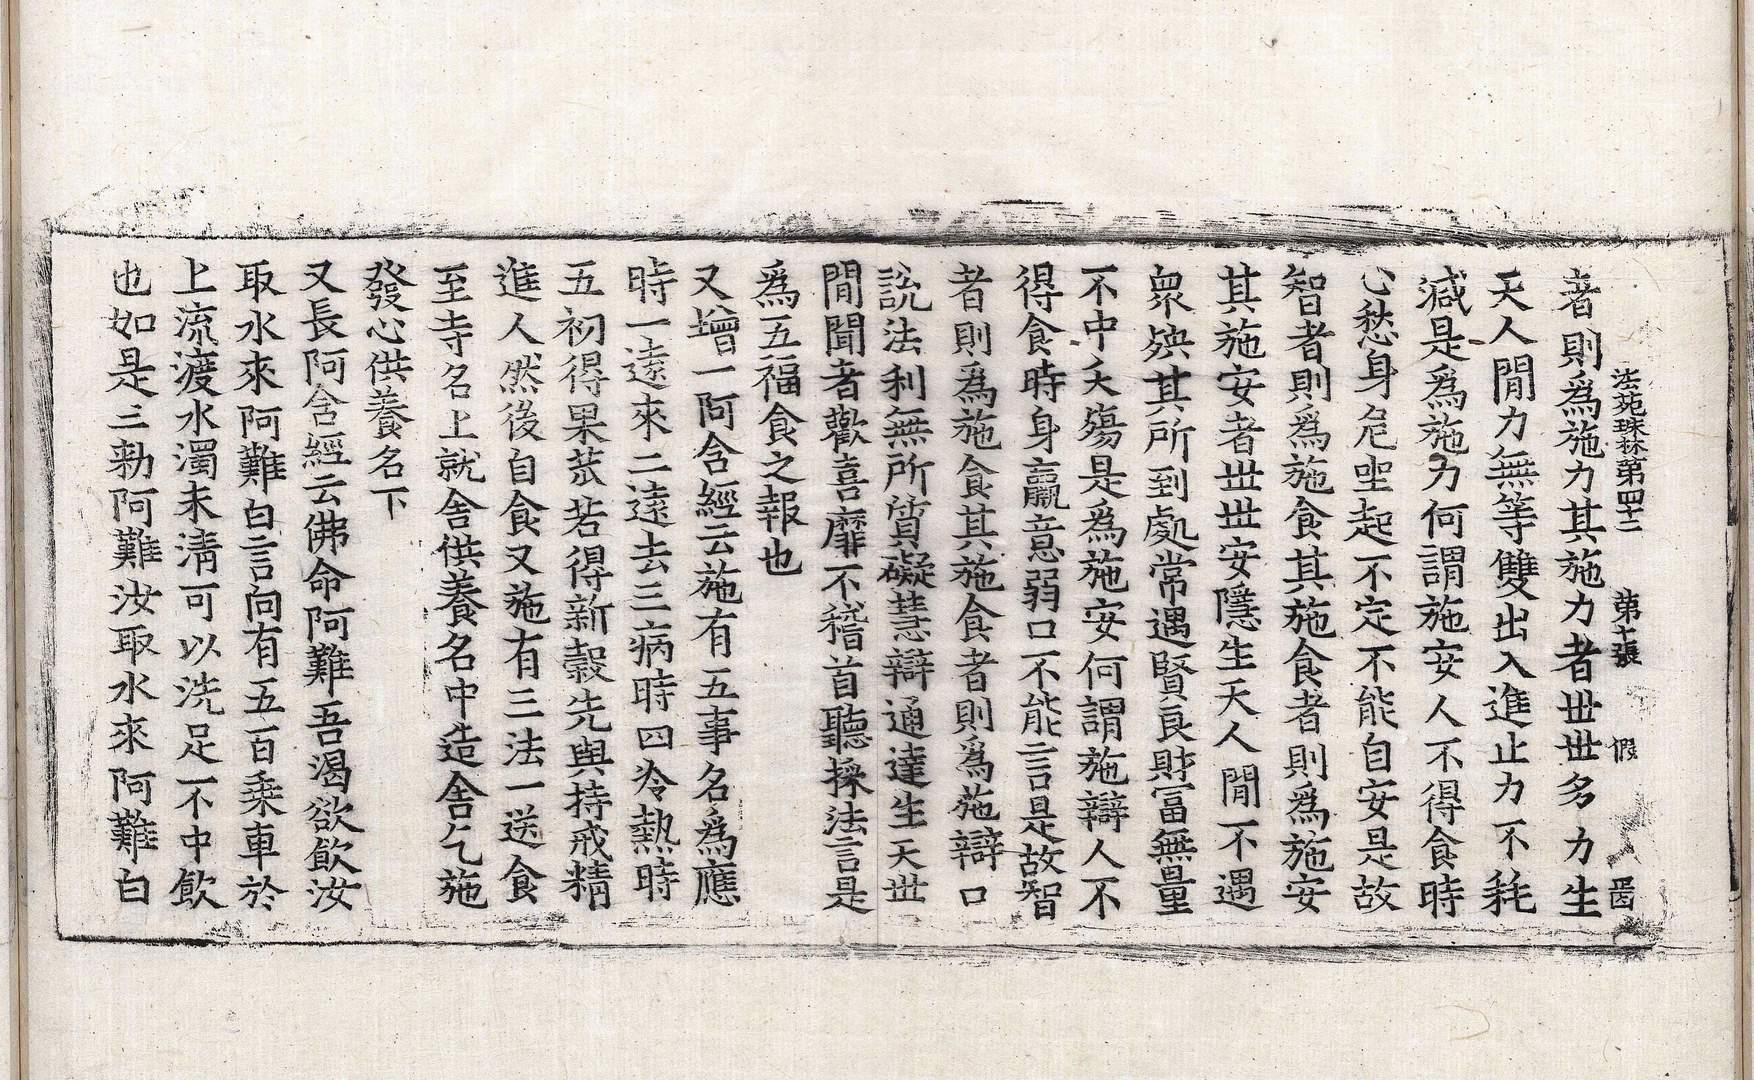 法苑珠林第四十二 第十張 假
者則爲施力其施力者世世多力生
天人閒力無等雙出入進止力不耗
減是爲施力何謂施安人不得食時
心愁身危坐起不定不能自安是故
智者則爲施食其施食者則爲施安
其施安者世世安隱生天人閒不遇
衆殃其所到處常遇賢良財富無量
不中夭殤是爲施安何謂施辯人不
得食時身羸意弱口不能言是故智
者則爲施食其施食者則爲施辯口
說法利無所質礙慧辯通達生天世
閒聞者歡喜靡不稽首聽採法言是
爲五福食之報也
又增一阿含經云施有五事名爲應
時一遠來二遠去三病時四冷熱時
五初得果苽若得新穀先與持戒精
進人然後自食又施有三法一送食
至寺名上就舍供養名中造舍乞施
發心供養名下
又長阿含經云佛命阿難吾渴欲飮汝
取水來阿難白言向有五百乘車於
上流渡水濁未淸可以洗足不中飮
也如是三勅阿難汝取水來阿難白